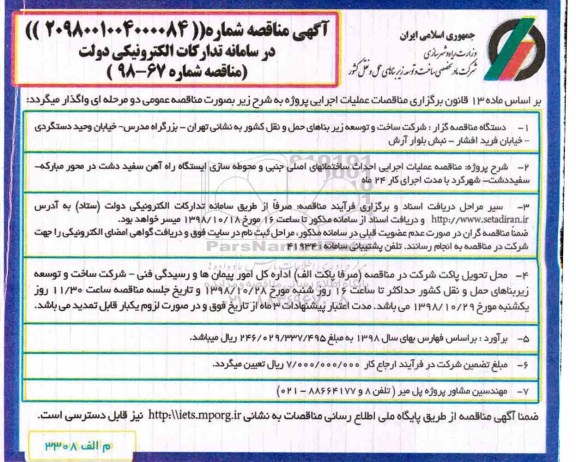 جمهوری اسلامی ایران
وزارت راه و شهرسازی
شرکت مادر تخصصی ساخت و توسعه زیربناهای حمل و نقل کشور
آگهی مناقصه شماره(( ۲۰۹۸۰۰۱۰۰۴۰۰۰۰۸۴ ))
در سامانه تدارکات الکترونیکی دولت
(مناقصه شماره ۶۷-۹۸)
بر اساس ماده ۱۳ قانون برگزاری مناقصات عملیات اجرایی پروژه به شرح زیر بصورت مناقصه عمومی دو مرحله ای واگذار میگردد:
۱- دستگاه مناقصه گزار : شرکت ساخت و توسعه زیر بناهای حمل و نقل کشور به نشانی تهران - بزرگراه مدرس- خیابان وحید دستگردی
- خیابان فرید افشار - نبش بلوار آرش
۲- شرح پروژه: مناقصه عملیات اجرایی احداث ساختمانهای اصلی جنبی و محوطه سازی ایستگاه راه آهن سفید دشت در محور مبارکه-
سفیددشت- شهرکرد با مدت اجرای کار ۲۴ ماه
۳- سیر مراحل دریافت اسناد و برگزاری فرآیند مناقصه: صرفاً از طریق سامانه تدارکات الکترونیکی دولت (ستاد) به آدرس
http://www.setadiran.ir و دریافت اسناد از سامانه مذکور تا ساعت ۱۶ مورخ ۱۳۹۸/۱۰/۱۸ میسر خواهد بود.
ضمناً مناقصه گران در صورت عدم عضویت قبلی در سامانه مذکور، مراحل ثبت نام در سایت فوق و دریافت گواهی امضای الکترونیکی را جهت
شرکت در مناقصه به انجام رسانند. تلفن پشتیبانی سامانه : ۴۱۹۳۴
۴- محل تحویل پاکت شرکت در مناقصه (صرفا پاکت الف) اداره کل امور پیمان ها و رسیدگی فنی - شرکت ساخت و توسعه
زیربناهای حمل و نقل کشور حداکثر تا ساعت ۱۶ روز شنبه مورخ ۱۳۹۸/۱۰/۲۸ و تاریخ جلسه مناقصه ساعت ۱۱/۳۰ روز
یکشنبه مورخ ۱۳۹۸/۱۰/۲۹ می باشد. مدت اعتبار پیشنهادات ۳ ماه از تاریخ فوق و در صورت لزوم یکبار قابل تمدید می باشد.
۵- برآورد : براساس فهارس بهای سال ۱۳۹۸ به مبلغ ۲۴۶/۰۲۹/۳۳۷/۴۹۵ ریال میباشد.
۶- مبلغ تضمین شرکت در فرآیند ارجاع کار ۷/۰۰۰/۰۰۰/۰۰۰ ریال تعیین میگردد.
۷- مهندسین مشاور پروژه پل میر ( تلفن ۸ و ۸۸۶۶۴۱۷۷ - ۰۲۱)
ضمنا آگهی مناقصه از طریق پایگاه ملی اطلاع رسانی مناقصات به نشانی http:\\iets.mporg.ir نیز قابل دسترسی است.
م الف ۳۳۰۸